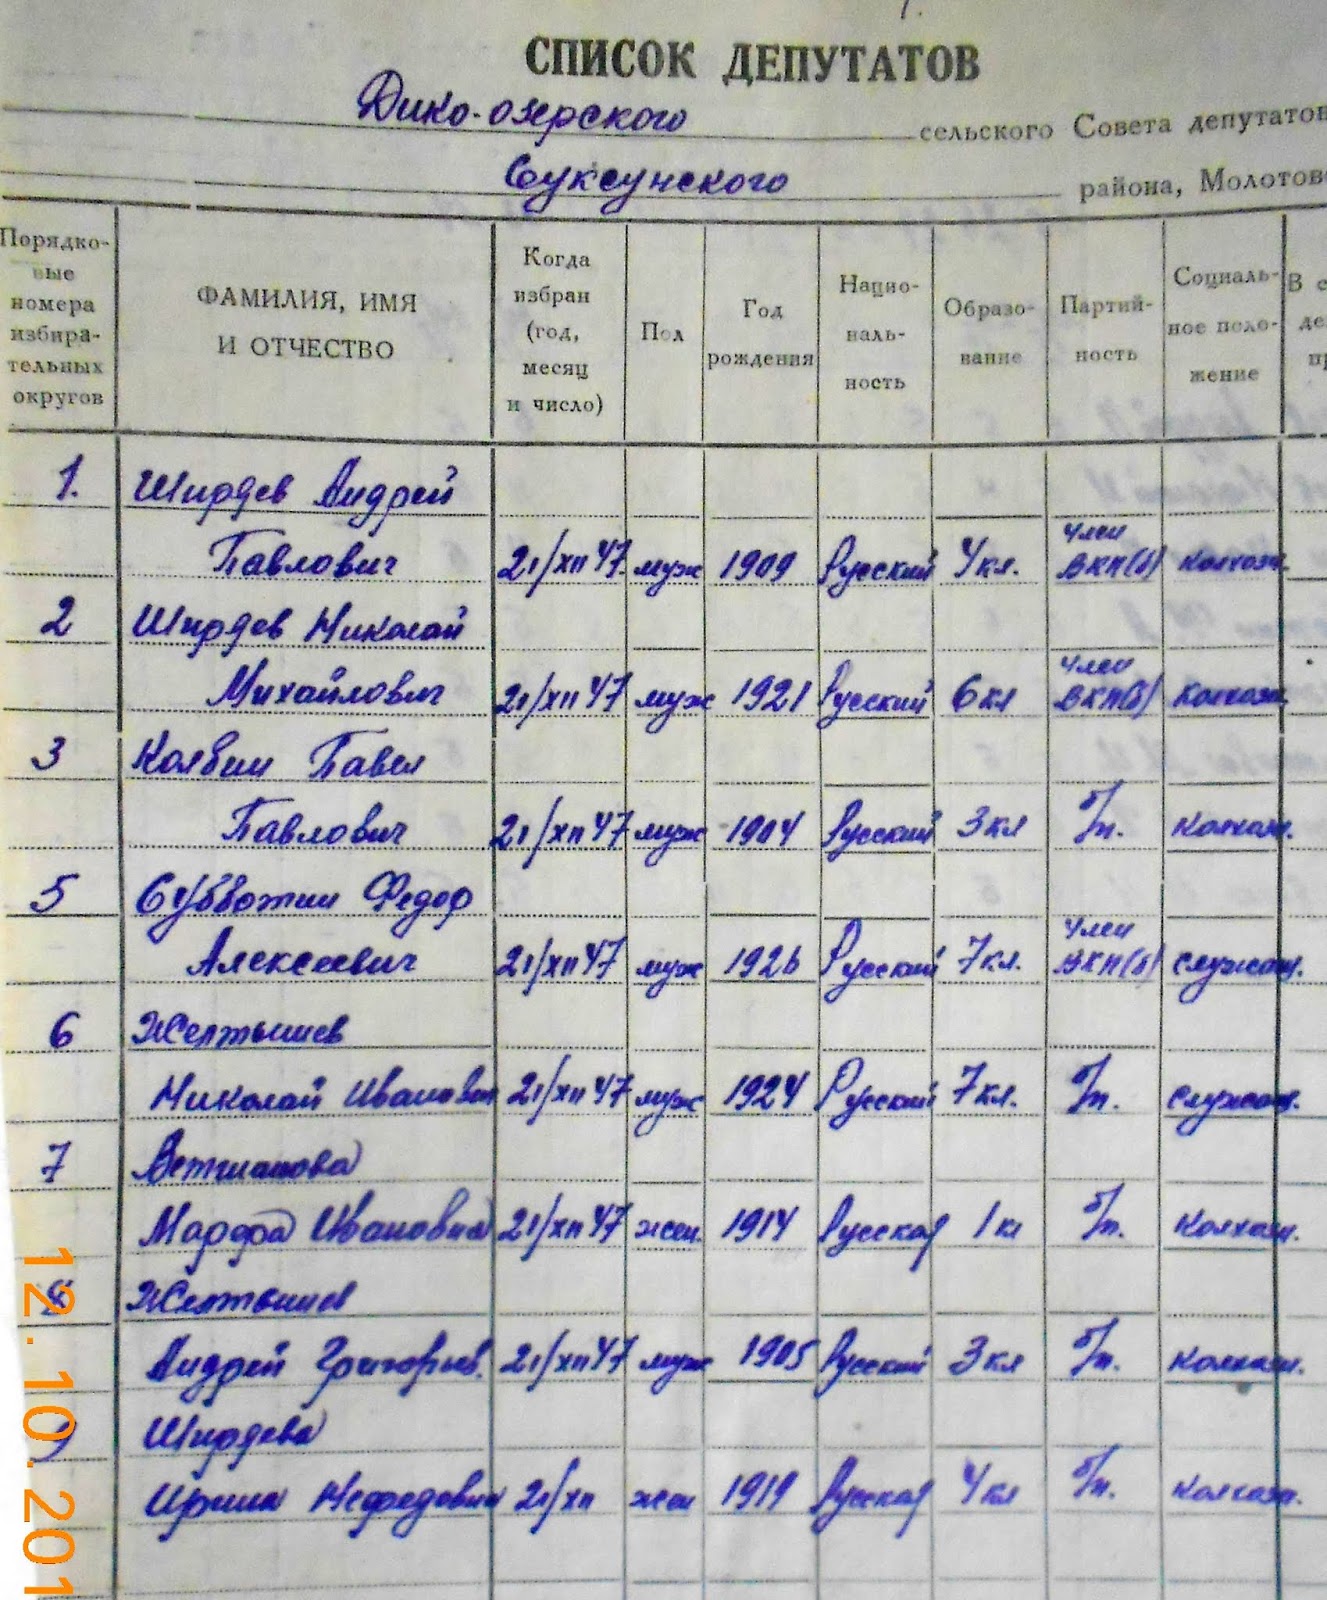 СПИСОК ДЕПУТАТОВ
Дико-озерского сельского Совета депутатов
Суксунского района, Молотов
Порядко-
вые
номера
избира-
тельных
округов
ФАМИЛИЯ, ИМЯ
И ОТЧЕСТВО
Когда
избран
(год,
месяц
и число)
Пол
Год
рождения
Нацио-
наль-
ность
Образо-
вание
Партий-
ность
Социаль-
ное поло-
жение
1. Ширяев Андрей
Член
Павлович 21/XII 47 муж 1909 Русский 4 кл. ВКП(б) колхозн.
2 Ширяев Николай
Член
Михайлович 21/XII 47 муж 1921 Русский 6 кл ВКП(б) колхозн.
3 Колбин Павел
Павлович 21/XII 47 муж 1904 Русский 3 кл б/п. колхозн.
5 Субботин Федор
Член
Алексеевич 21/XII 47 муж 1926 Русский 7 кл. ВКП(б) служащ.
6 Желтышев
Николай Иванович 21/XII 47 муж 1924 Русский 7 кл. б/п. служащ.
7
Марфа Ивановна 21/XII 47 жен. 1914 Русская 1 кл б/п. колхозн.
8 Желтышев
Андрей Григорьев. 21/XII 47 муж 1905 Русский 3 кл б/п. колхозн.
9 Ширяева
Ирина Нефедовна 21/XII жен 1919 Русская 4 кл б/п. колхозн.
12.10.201